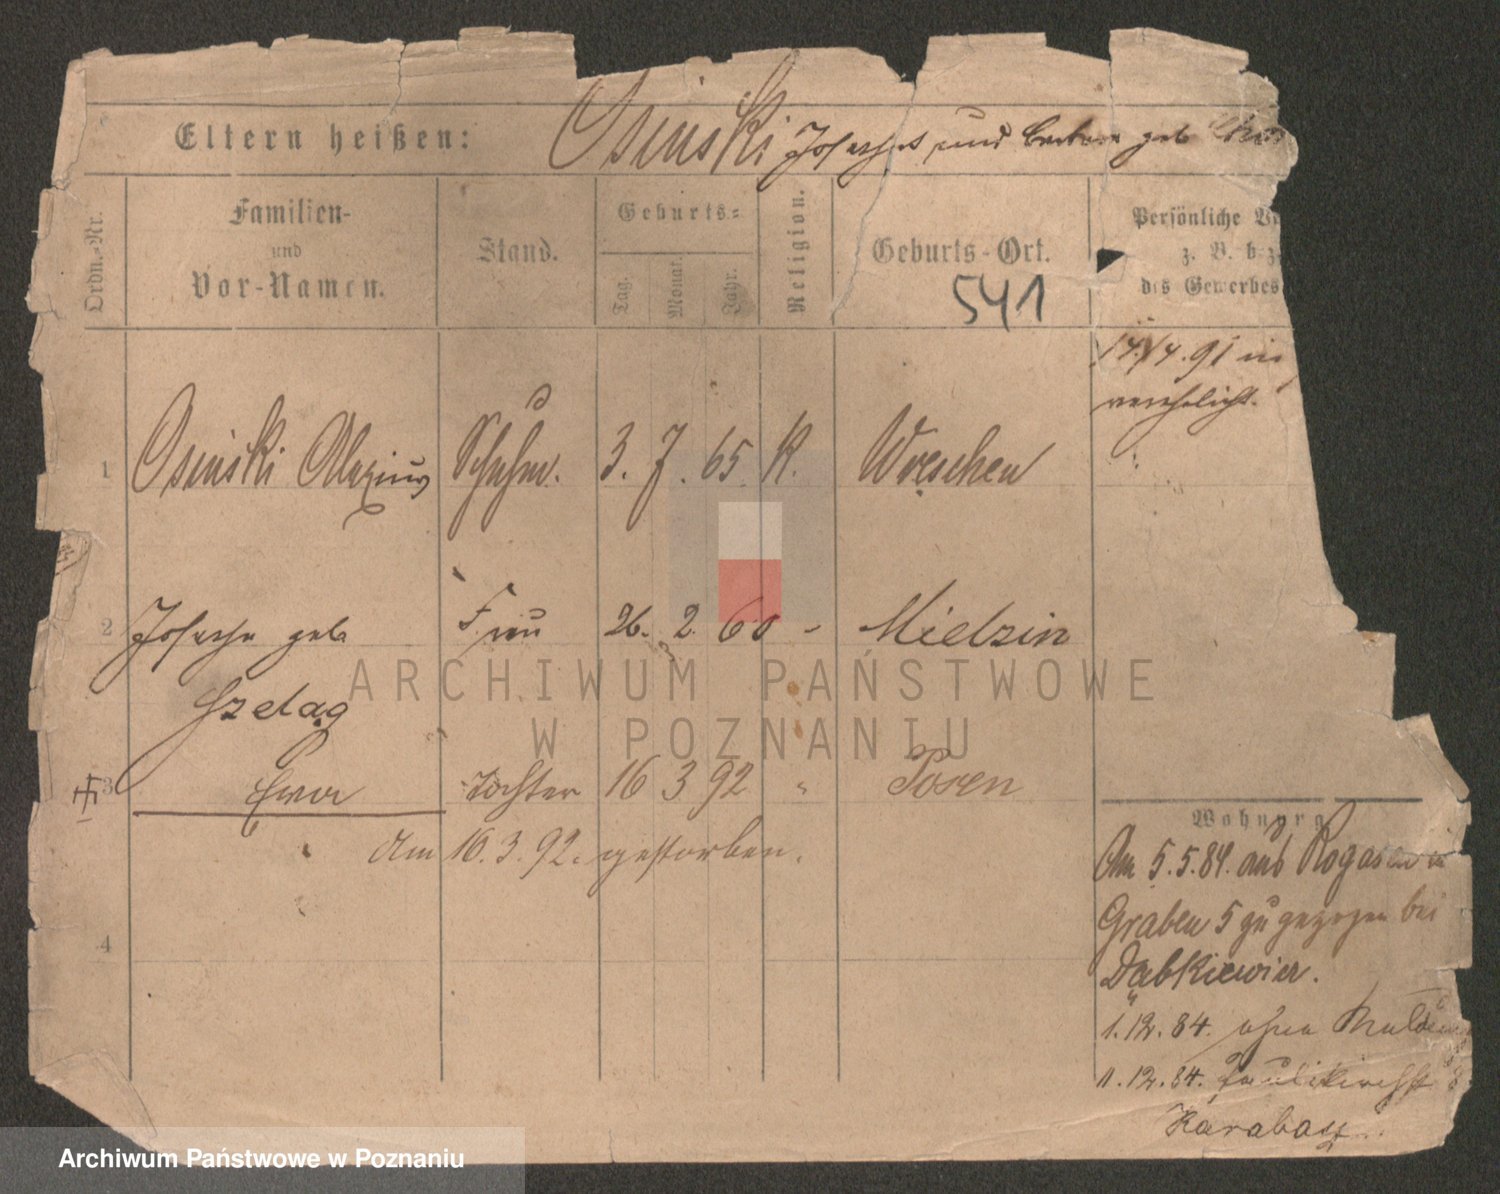 Eltern heißen: Osinski Josephat und Barbara geb
Ordn.-Nr.
Familien-
und
Vor-Namen.
Stand.
Geburts-
Tag. Monat. Jahr.
Religion.
Geburts-Ort.
541
Persönliche
z. B. bez
des Gewerbes
14./4. 91 in
verehelicht.
1 Osinski Alexius Schuhm. 3. 7. 65. K. Wreschen
2 Josepha geb Frau 26. 2. 60 - Mielzin
Szeląg
3 Ewa Tochter 16 3 92 " Posen
Am 16. 3. 92. gestorben.
4
Wohnung
Am 5. 5. 84. aus Rogasen in
Graben 5 zugezogen bei
Dąbkiewicz.
1. 12. 84. ohne
11. 12. 84. Paulikirchstr 8
Karabasz.
ARCHIWUM PAŃSTWOWE
W POZNANIU
Archiwum Państwowe w Poznaniu